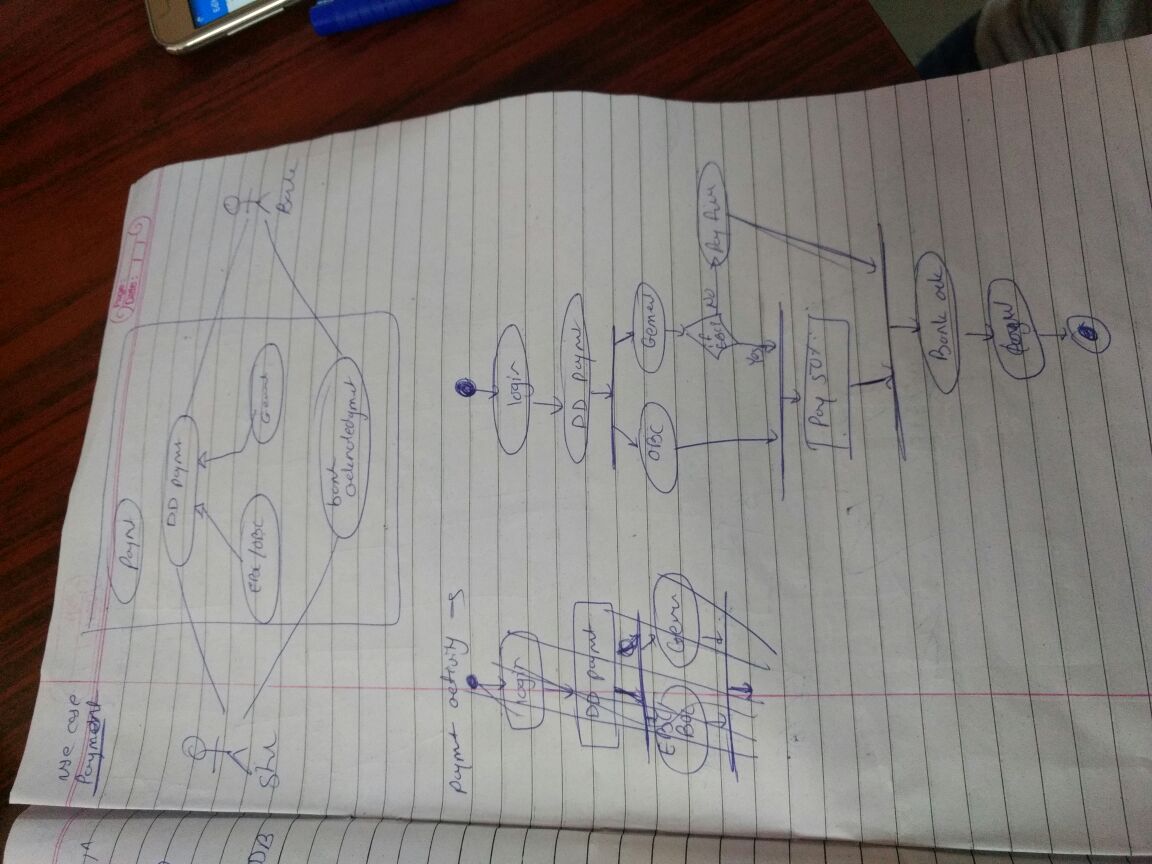 use case
Payment
Page:
Date:
Paymt
DD paymt
EBC/OBC
Genral
Stu
Bank
bank
acknoledgmet
DB
Paymt activity →
login
DD paymt
EBC/
BOC
login
DD paymt
OBC
General
if
EBC?
No
Pay Full
Yes
Pay 50%
Bank ack